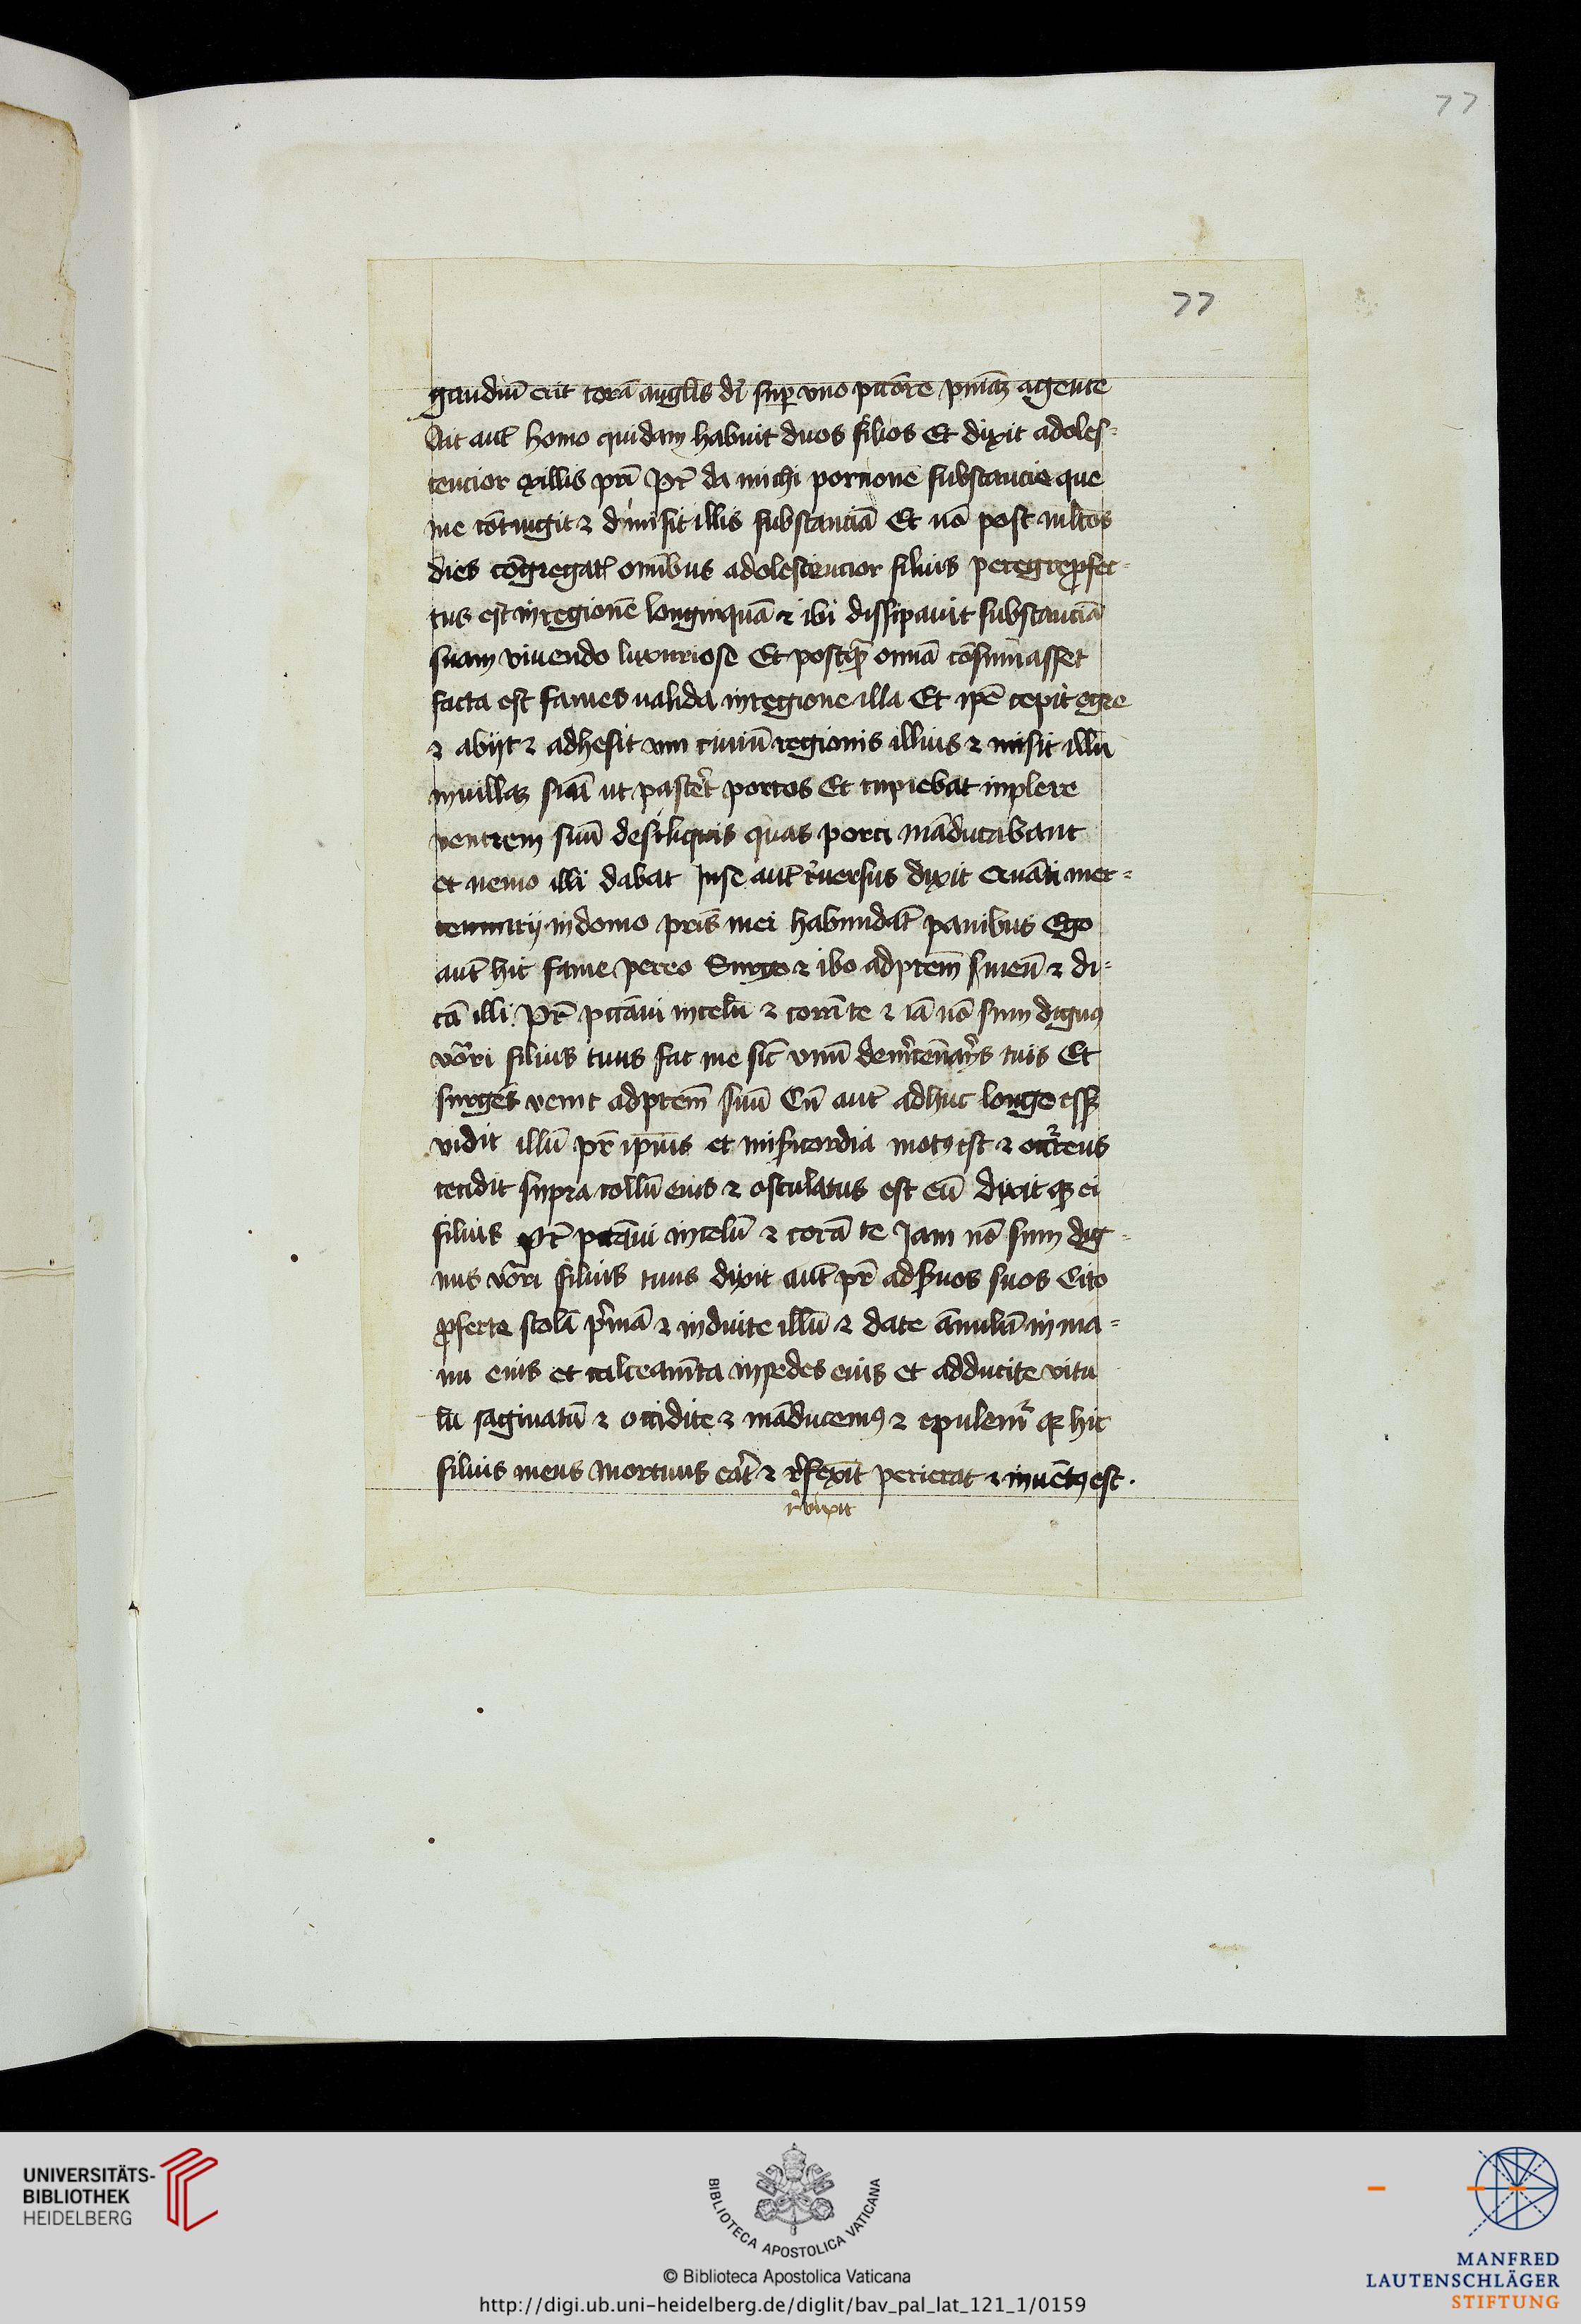 77
77
gaudiū erit corā angl̄is dī sup vno pctōre pniāȝ agente
Ait aut̄ homo quidam habuit duos filios Et dixit adoles-
cencior exillis pr̄i Pr̄ da michi porcionē substancie que
me cōtingit ⁊ diuisit illis substanciā Et nō post ml̄tos
dies cōgregat̄ omībus adolescencior filius peregre ꝓfec-
tus est in regionē longinquā ⁊ ibi dissipauit substanciā
suam viuendo luxuriose Et postqꝫ om̄ia cōsūmasset
facta est fames valida in regione illa Et ip̄e cepit egre
⁊ abijt ⁊ adhesit vni ciuiū regionis illius ⁊ misit illū
in villaȝ suā ut pascēt porcos Et cupiebat inplere
ventrem suū de siliquis quas porci māducabant
et nemo illi dabat Inse aut̄ rͥuersus dixit Quāti mer-
cennarij in domo pris̄ mei habundāt panibus Ego
aut̄ hic fame pereo Surgo ⁊ ibo ad prem̄ meū ⁊ di-
cā illi Pr̄ pccāui in celū ⁊ corā te ⁊ iā nō sum dignꝰ
vōri filius tuus fac me sic̄ vnū de mr̄cēnarijs tuis Et
surgēs venit ad prem̄ suū Cū aut̄ adhuc longe esset
vidit illū pr̄ ipius̄ et mis̄icordia motꝰ est ⁊ occ̄rens
cecidit supra collū eius ⁊ osculatus est eū dixit qꝫ ei
filius Pr̄ pccāui in celū ⁊ corā te Jam nō sum dig-
nus vōri filius tuus dixit aut̄ pr̄ ad s̄uos suos Cito
ꝓferte stolā pͥmā ⁊ induite illū ⁊ date ānulū in ma-
nu eius et calceamēta in pedes eius et adducite vitu
lū saginatū ⁊ occidite ⁊ māducemꝰ ⁊ epulemr̄ qꝛ hic
filius meus mortuus eāt ⁊ rͥfexit perierat ⁊ inuētꝰ est.
rͥuixit
UNIVERSITÄTS-
BIBLIOTHEK
HEIDELBERG
BIBLIOTECA APOSTOLICA VATICANA
© Biblioteca Apostolica Vaticana
http://digi.ub.uni-heidelberg.de/diglit/bav_pal_lat_121_1/0159
MANFRED
LAUTENSCHLÄGER
STIFTUNG